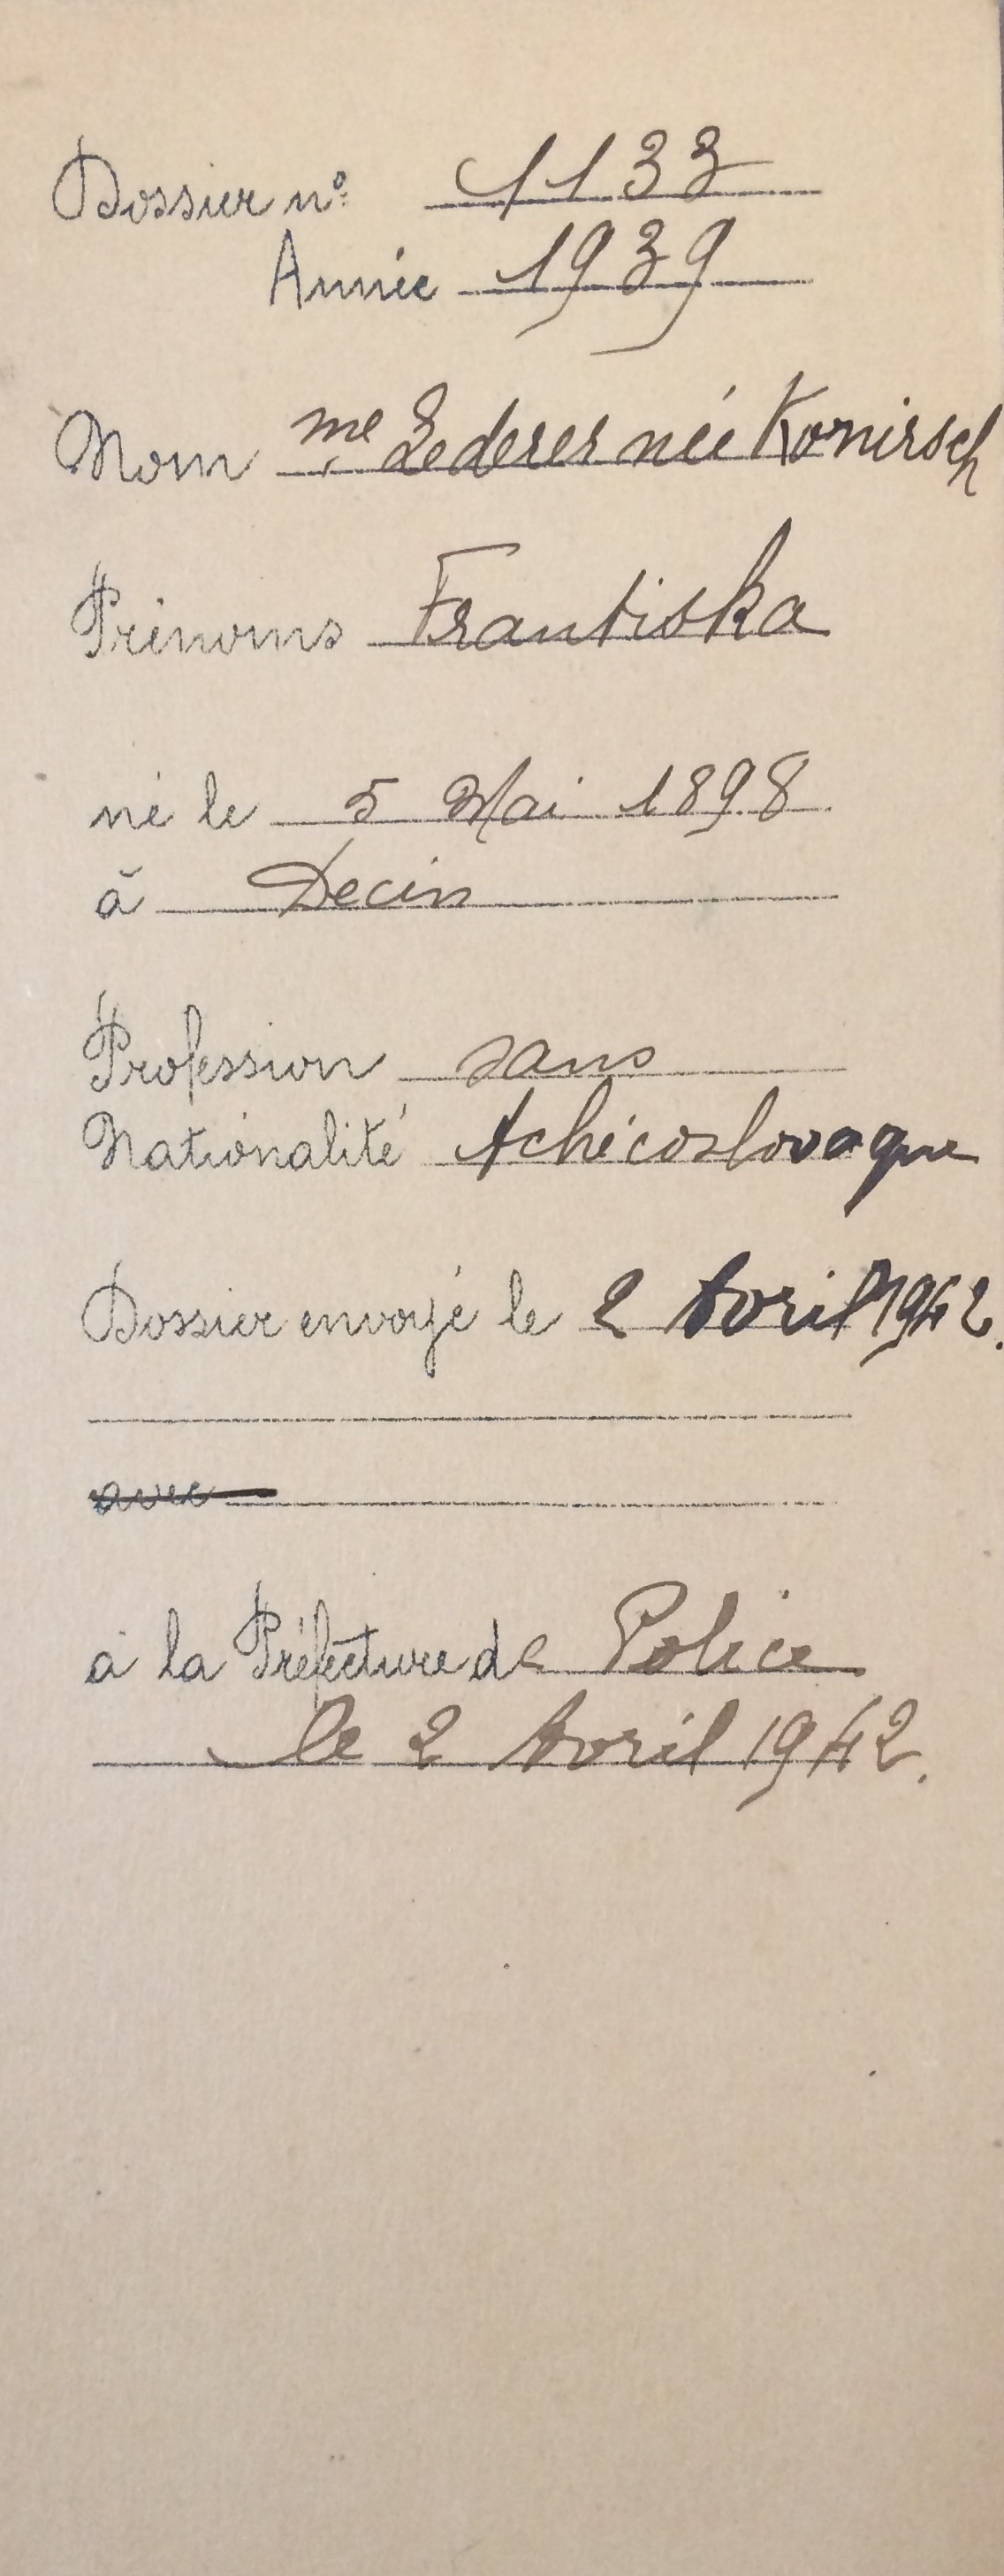 Dossier nº 1133
Année 1939
Nom me Lederer née Konirsch
Prénoms Frantiska
né le 5 Mai 1898
à Decin
Profession sans
Nationalité tchécoslovaque
Dossier envoyé le 2 Avril 1942.
avec
à la Préfecture de Police
le 2 Avril 1942.